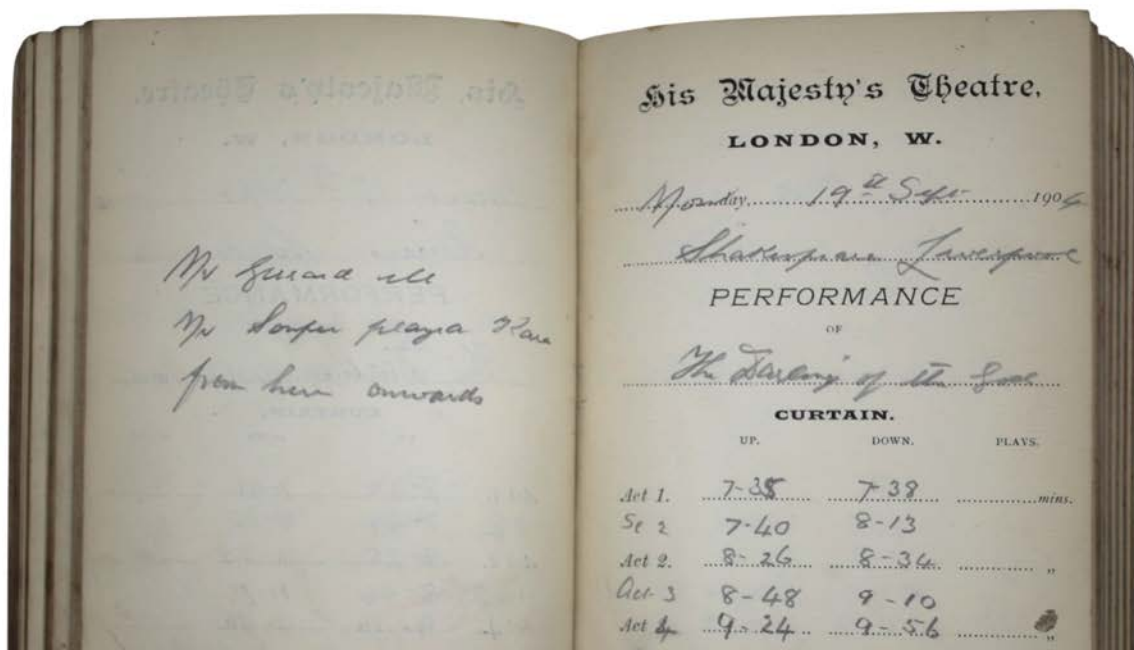 Mr Gerrard ill
Mr Soufer playza Kara
from here onwards
His Majesty's Theatre,
LONDON, W.
Monday 19th Sept 1904
Shakespeare Liverpool
PERFORMANCE
OF
The Darling of the Gods
CURTAIN.
UP. DOWN. PLAYS.
Act 1. 7-35 7-38 mins.
Sc 2 7-40 8-13
Act 2. 8-26 8-34 "
Act 3 8-48 9-10
Act 4 9-24 9-56 "